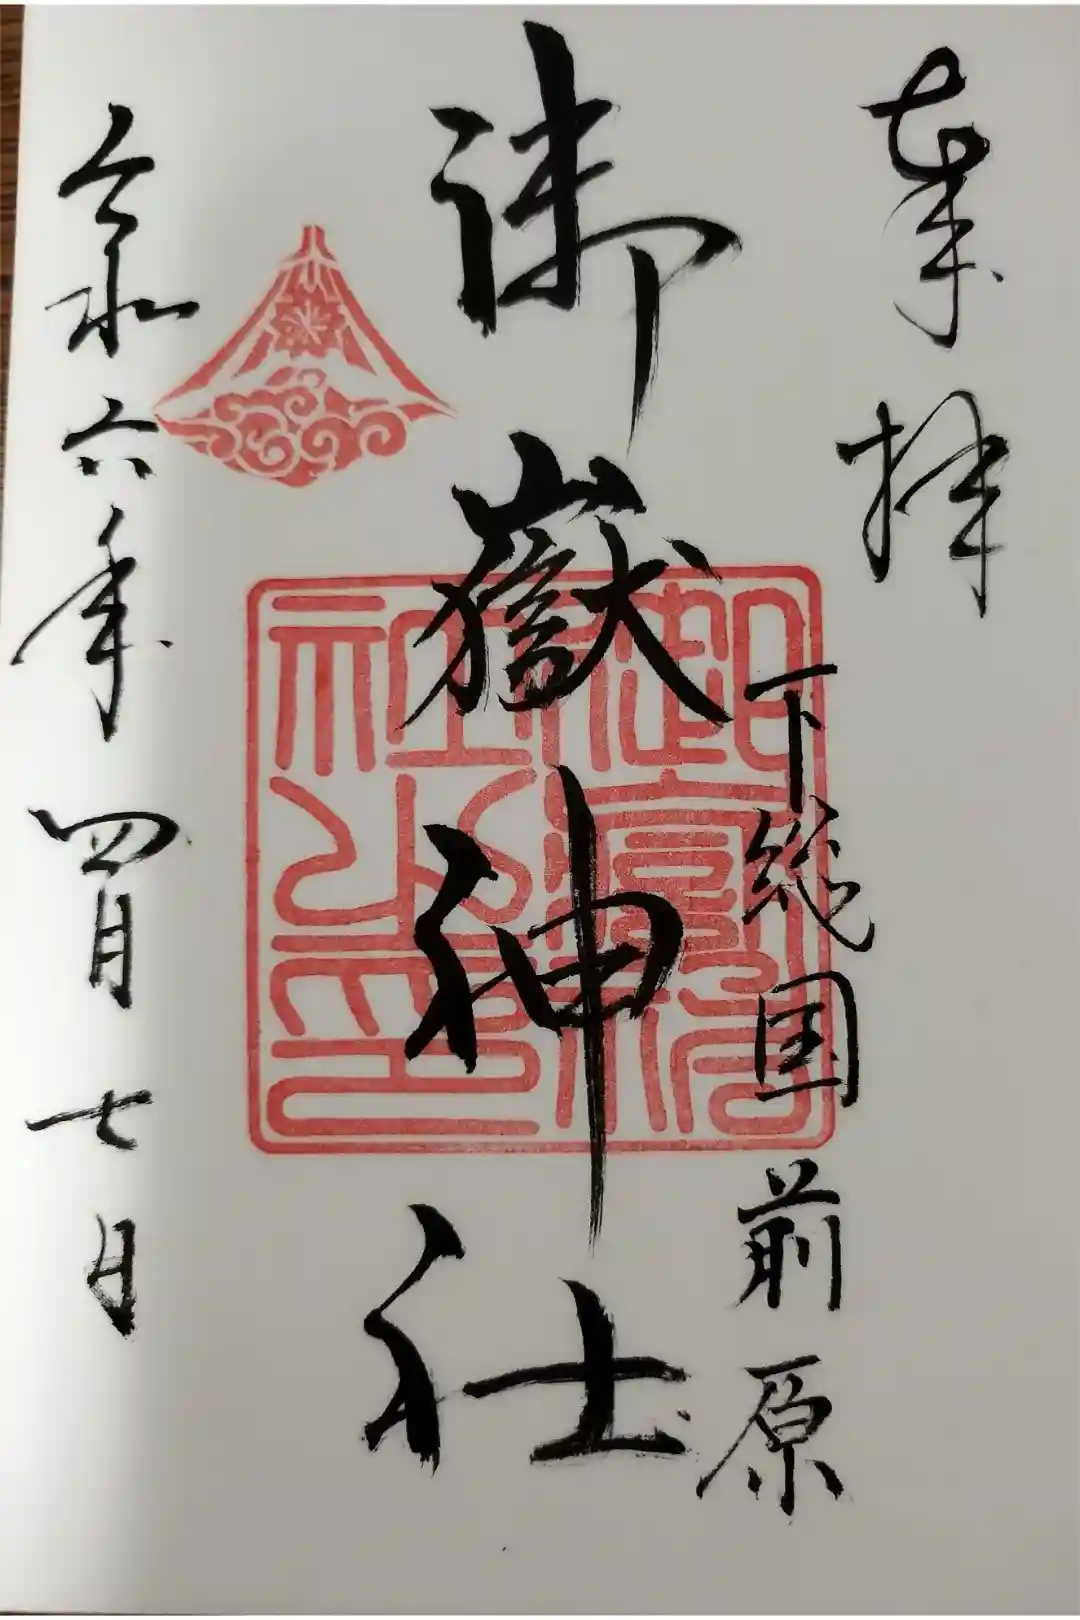 奉拝
下総国 前原
御嶽神社
御嶽神社之印
令和六年 四月 七日